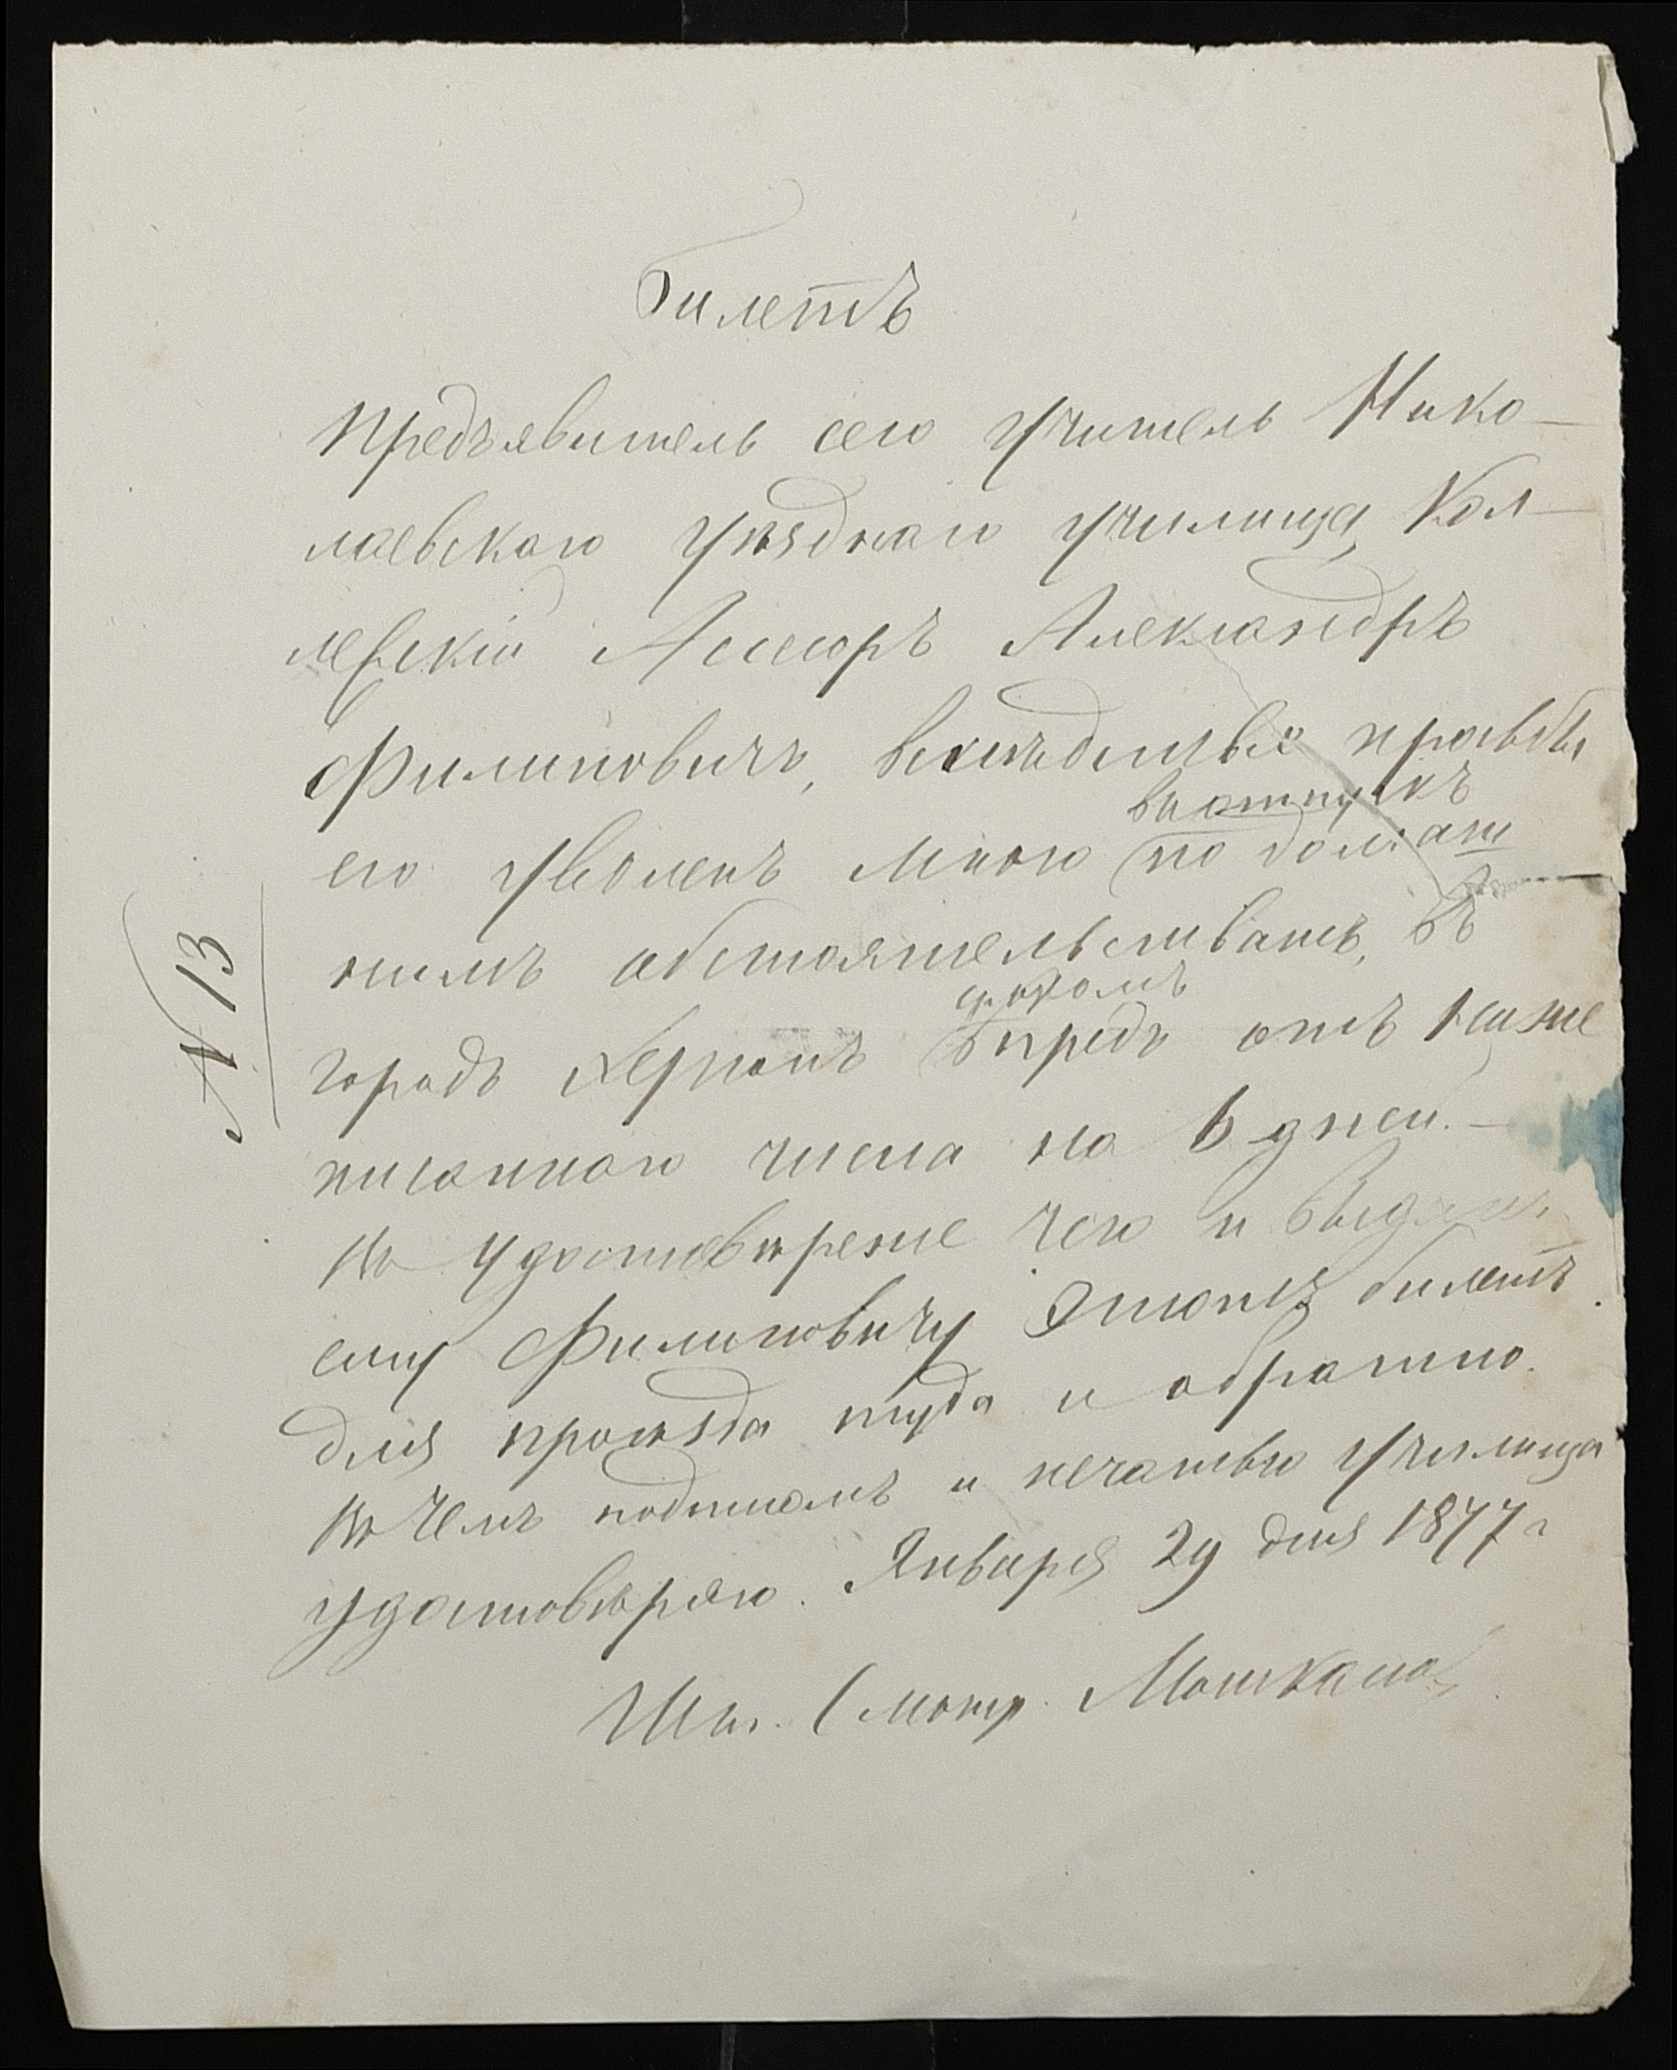 Билетъ
Предъявитель сего учитель Нико-
лаевскаго уѣзднаго училища, Кол-
лежскій Ассесоръ Александръ
Филиповичъ, вслѣдствіе просьбы
въ отпускъ
его уволенъ мною по домаш
нимъ обстоятельствамъ, въ
городъ Херсонъ срокомъ впредь отъ ниже
писаннаго числа на 6 дней.-
Въ удостовѣреніе чего и выданъ
ему Филиповичу этотъ билетъ
для проѣзда туда и обратно.
Въ чемъ подписомъ и печатью училища
удостовѣряю. Января 29 дня 1877 г
Шт. Смотр.
N 13